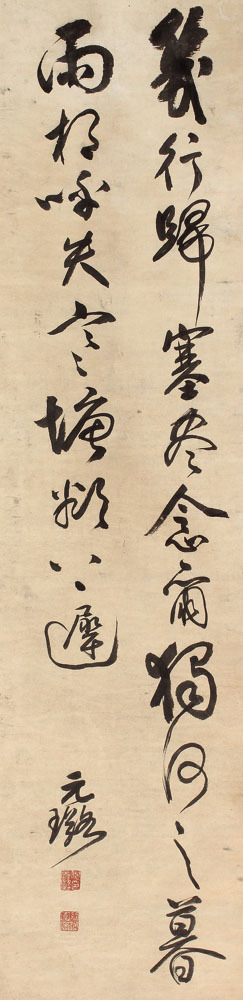 幾行歸塞盡念爾獨何之暮
雨相呼失寒塘欲下遲
元璐